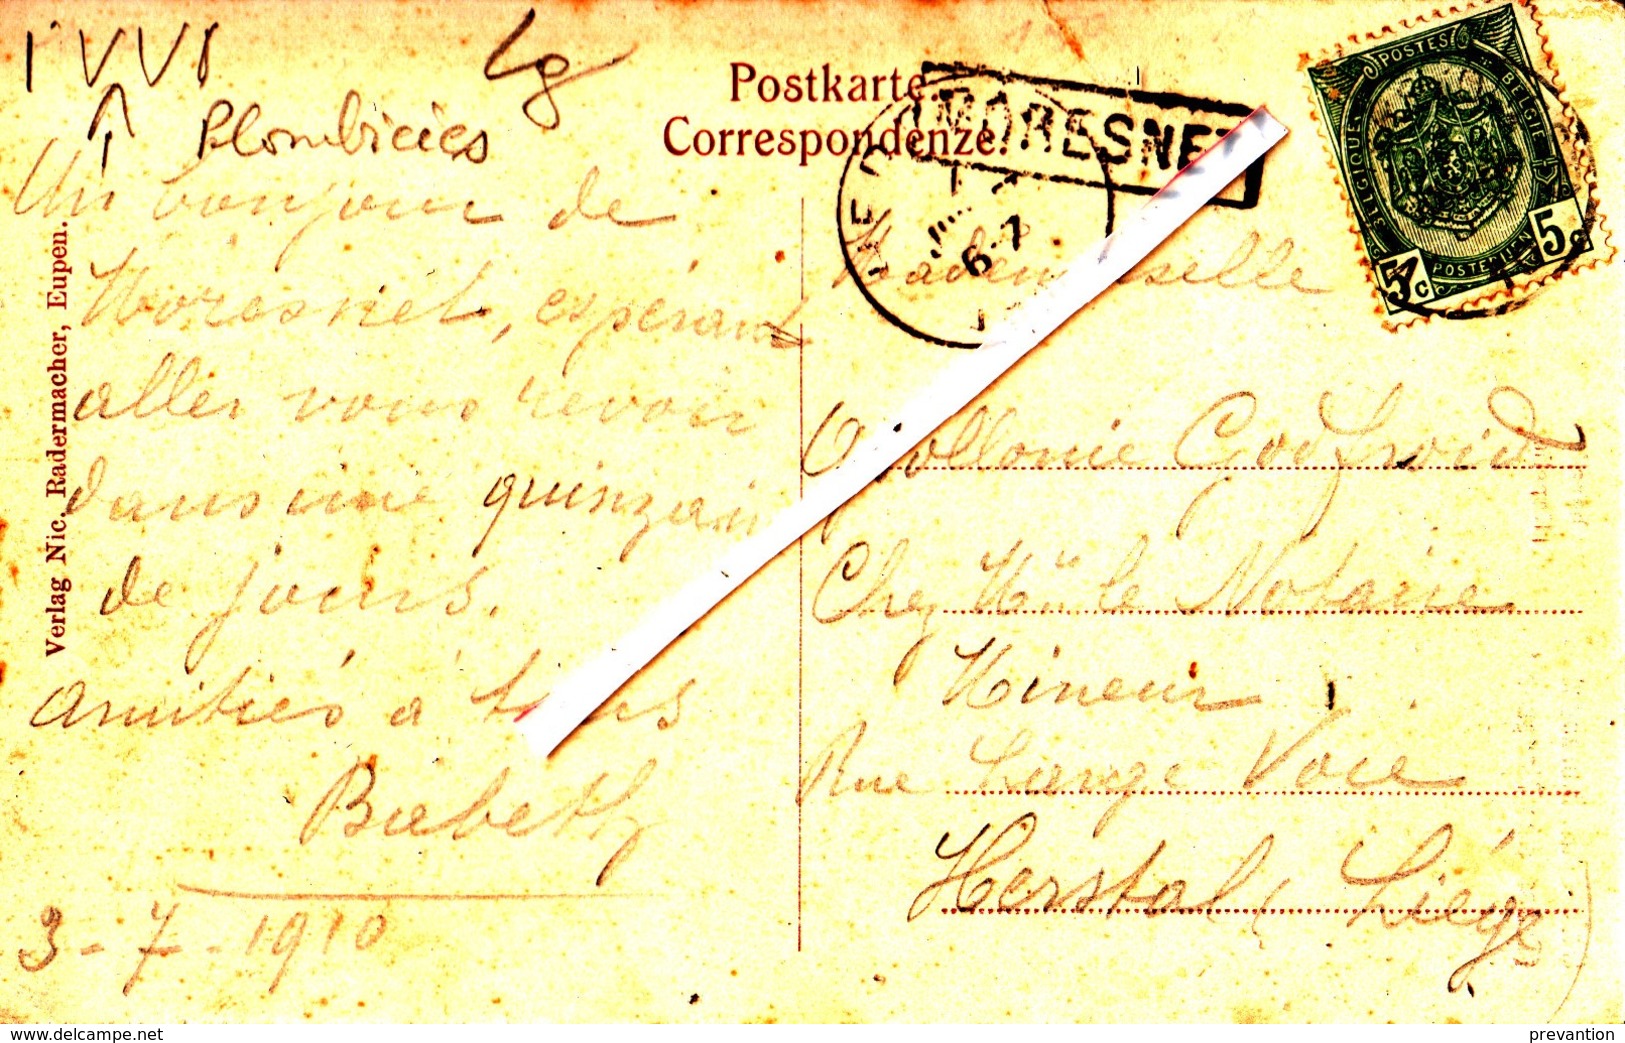 Lg
Plombières
Postkarte.
Correspondenze.
MORESNET
6-7
POSTES
BELGIQUE
BELGIË
POSTERIJEN
5c
5c
Verlag Nic. Radermacher, Eupen.
Un bonjour de
Moresnet, espérant
aller vous revoir
dans une quinzain
de jours.
Amitiés à tous
Babeth
3-7-1910
Mademoiselle
Apollonie Godfroid
Chez Mr le Notaire
Mineur
Rue Large Voie
Herstal (Liége)
www.delcampe.net
prevantion